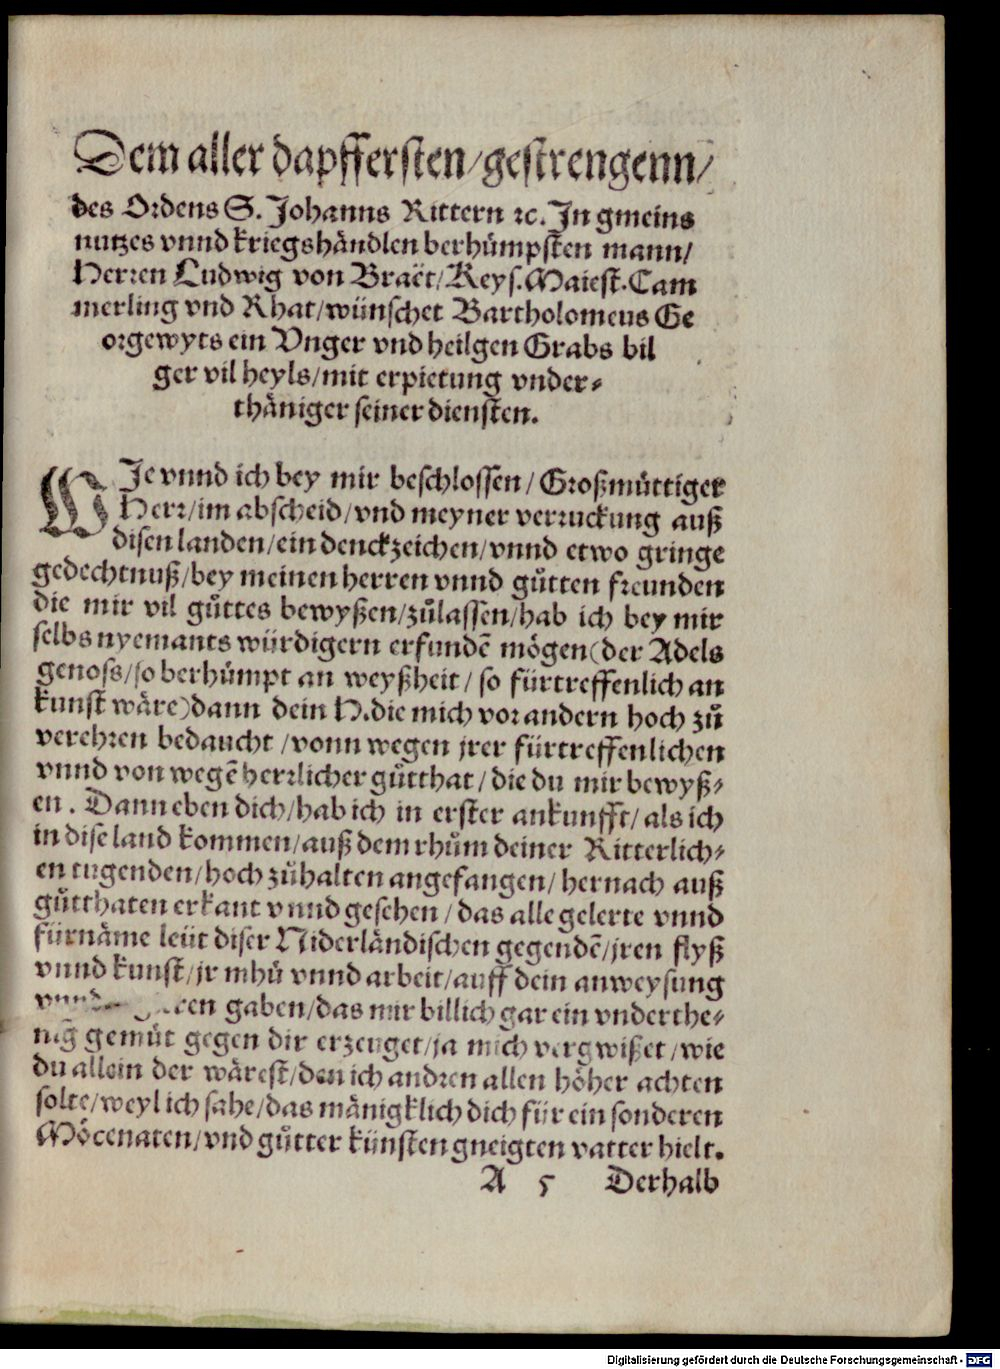 Dem aller dapffersten/gestrengenn/
des Ordens S. Johanns Rittern ꝛc. In gmeins
nutzes vnnd kriegshändlen berhůmpsten mann/
Herren Ludwig von Braët/Keys. Maiest. Cam
merling vnd Rhat/wünschet Bartholomeus Ge
orgewyts ein Vnger vnd heilgen Grabs bil
ger vil heyls/mit erpietung vnder-
thäniger seiner diensten.
WIe vnnd ich bey mir beschlossen/Großmůttiger
Herr/im abscheid/vnd meyner verruckung auß
disen landen/ein denckzeichen/vnnd etwo gringe
gedechtnuß/bey meinen herren vnnd gůtten freunden
die mir vil gůttes bewyßen/zůlassen/hab ich bey mir
selbs nyemants würdigern erfundē mögen(der Adels
genoss/so berhůmpt an weyßheit/so fürtreffenlich an
kunst wäre)dann dein H.die mich vor andern hoch zů
verehren bedaucht/vonn wegen jrer fürtreffenlichen
vnnd von wegē herrlicher gůtthat/die du mir bewyß-
en. Dann eben dich/hab ich in erster ankunfft/als ich
in dise land kommen/auß dem rhům deiner Ritterlich-
en tugenden/hoch zůhalten angefangen/hernach auß
gůtthaten erkant vnnd gesehen/das alle gelerte vnnd
fürnäme leüt diser Niderländischen gegendē/jren flyß
vnnd kunst/jr mhů vnnd arbeit/auff dein anweysung
gaben/das mir billich gar ein vnderthe-
nig gemüt gegen dir erzeuget/ja mich vergwißet/wie
du allein der wärest/den ich andren allen höher achten
solte/weyl ich sahe/das mänigklich dich für ein sonderen
Möcenaten/vnd gůtter künsten gneigten vatter hielt.
A 5 Derhalb
Digitalisierung gefördert durch die Deutsche Forschungsgemeinschaft - DFG